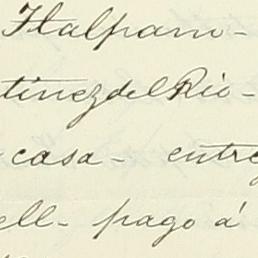 Tlalpam-
tinez del Rio-
casa- entre
ell- pago á